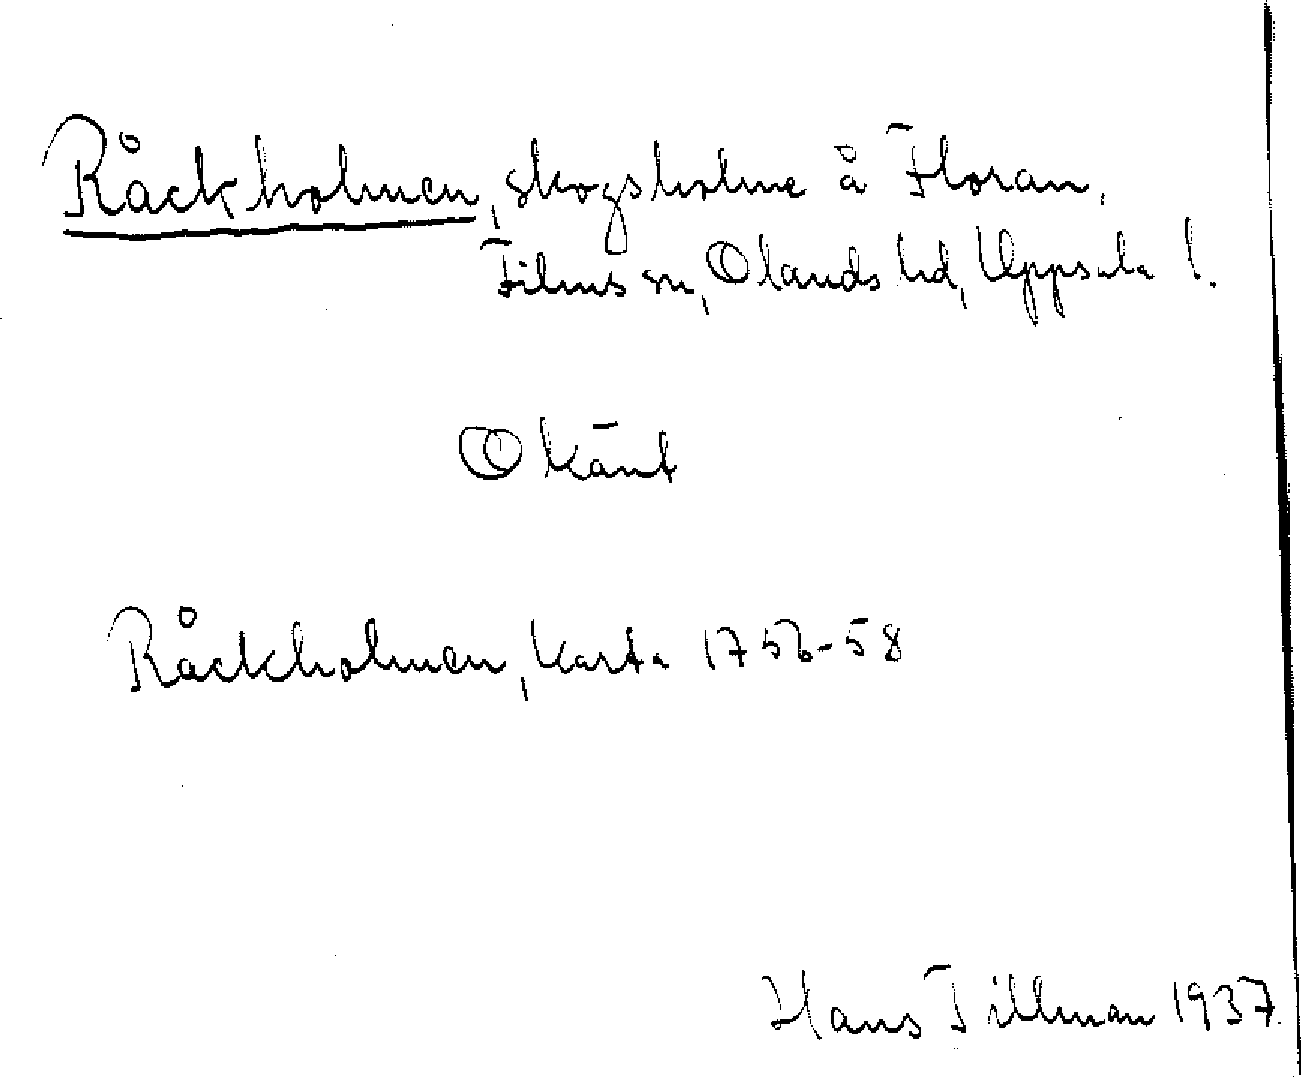 Råckholmen, skogsholme å Floran,
Films sn, Olands hd, Uppsala l.
Okänt
Råckholmen, karta 1756-58
Hans Tillman 1937